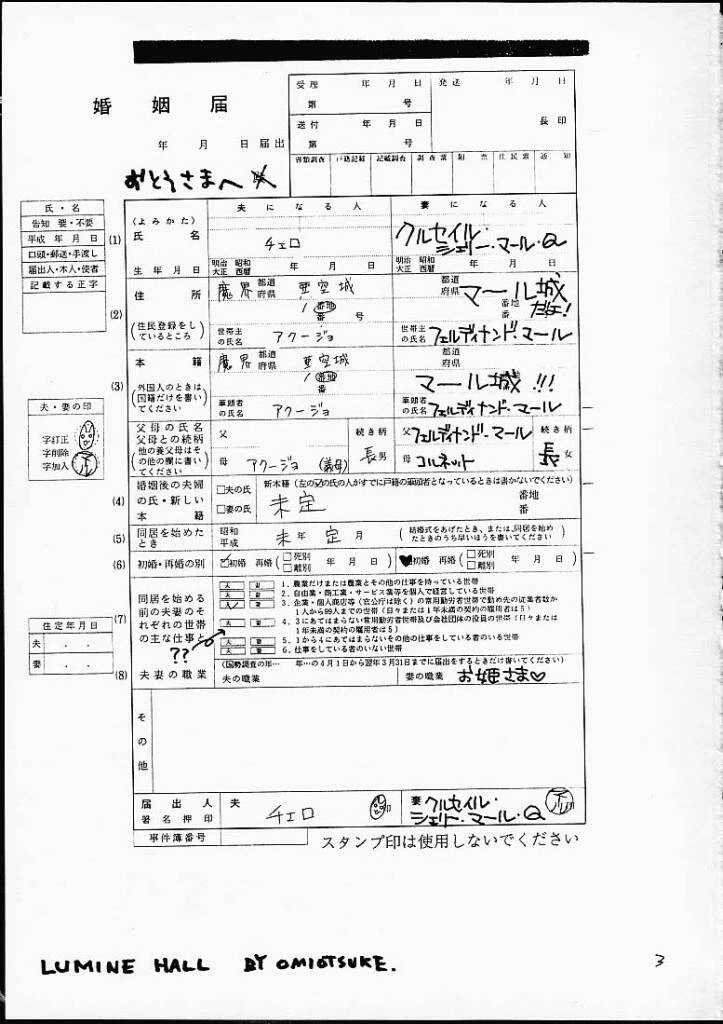 婚姻届
年 月 日 届出
おとうさまへ
受理 年 月 日
第 号
発送 年 月 日
送付 年 月 日
第 号
長印
書類調査 戸籍記載 記載調査 調査票 附票 住民票 通知
氏・名
告知 要・不要
平成 年 月 日
口頭・郵送・手渡し
届出人・本人・使者
記載する正字
夫になる人 妻になる人
(1)
(よみかた)
氏名
チェロ
クルセイル・
シェリー・マール・Q
生年月日
明治 昭和
大正 西暦
年 月 日
明治 昭和
大正 西暦
年 月 日
(2)
住所
(住民登録をし
ているところ)
魔界 都道府県 亜空城
1 番地
番 号
世帯主
の氏名
アクージョ
都道
府県
マール城
だよ!
番地
番
世帯主
の氏名
フェルディナンド・マール
(3)
本籍
(外国人のときは
国籍だけを書い
てください)
魔界 都道府県 亜空城
1 番地
番
筆頭者
の氏名
アクージョ
都道
府県
マール城!!!
筆頭者
の氏名
フェルディナンド・マール
夫・妻の印
字訂正
字削除
字加入
父母の氏名
父母との続柄
(他の養父母はそ
の他の欄に書い
てください)
父
母 アクージョ (義母)
続き柄
長男
父 フェルディナンド・マール
母 コルネット
続き柄
長女
(4)
婚姻後の夫婦
の氏・新しい
本籍
□夫の氏
□妻の氏
新本籍(左の☑の氏の人がすでに戸籍の筆頭者となっているときは書かないでください)
未定
番地
番
(5)
同居を始めた
とき
昭和
平成
未年 定月
(結婚式をあげたとき、または、同居を始め
たときのうち早いほうを書いてください)
(6)
初婚・再婚の別
☑初婚 再婚(□死別 □離別 年 月 日)
♥初婚 再婚(□死別 □離別 年 月 日)
(7)
同居を始める
前の夫妻のそ
れぞれの世帯
の主な仕事と
??
夫 妻 1.農業だけまたは農業とその他の仕事を持っている世帯
夫 妻 2.自由業・商工業・サービス業等を個人で経営している世帯
夫 妻 3.企業・個人商店等(官公庁は除く)の常用勤労者世帯で勤め先の従業者数が
1人から99人までの世帯(日々または1年未満の契約の雇用者は5)
夫 妻 4.3にあてはまらない常用勤労者世帯及び会社団体の役員の世帯(日々または
1年未満の契約の雇用者は5)
夫 妻 5.1から4にあてはまらないその他の仕事をしている者のいる世帯
夫 妻 6.仕事をしている者のいない世帯
住定年月日
夫 ・ ・
妻 ・ ・
(8)
夫妻の職業
(国勢調査の年… 年…の4月1日から翌年3月31日までに届出をするときだけ書いてください)
夫の職業
妻の職業
お姫さま♡
その他
届出人
署名押印
夫 チェロ
妻 クルセイル・
シェリー・マール・Q
事件簿番号
スタンプ印は使用しないでください
LUMINE HALL BY OMIOTSUKE.
3